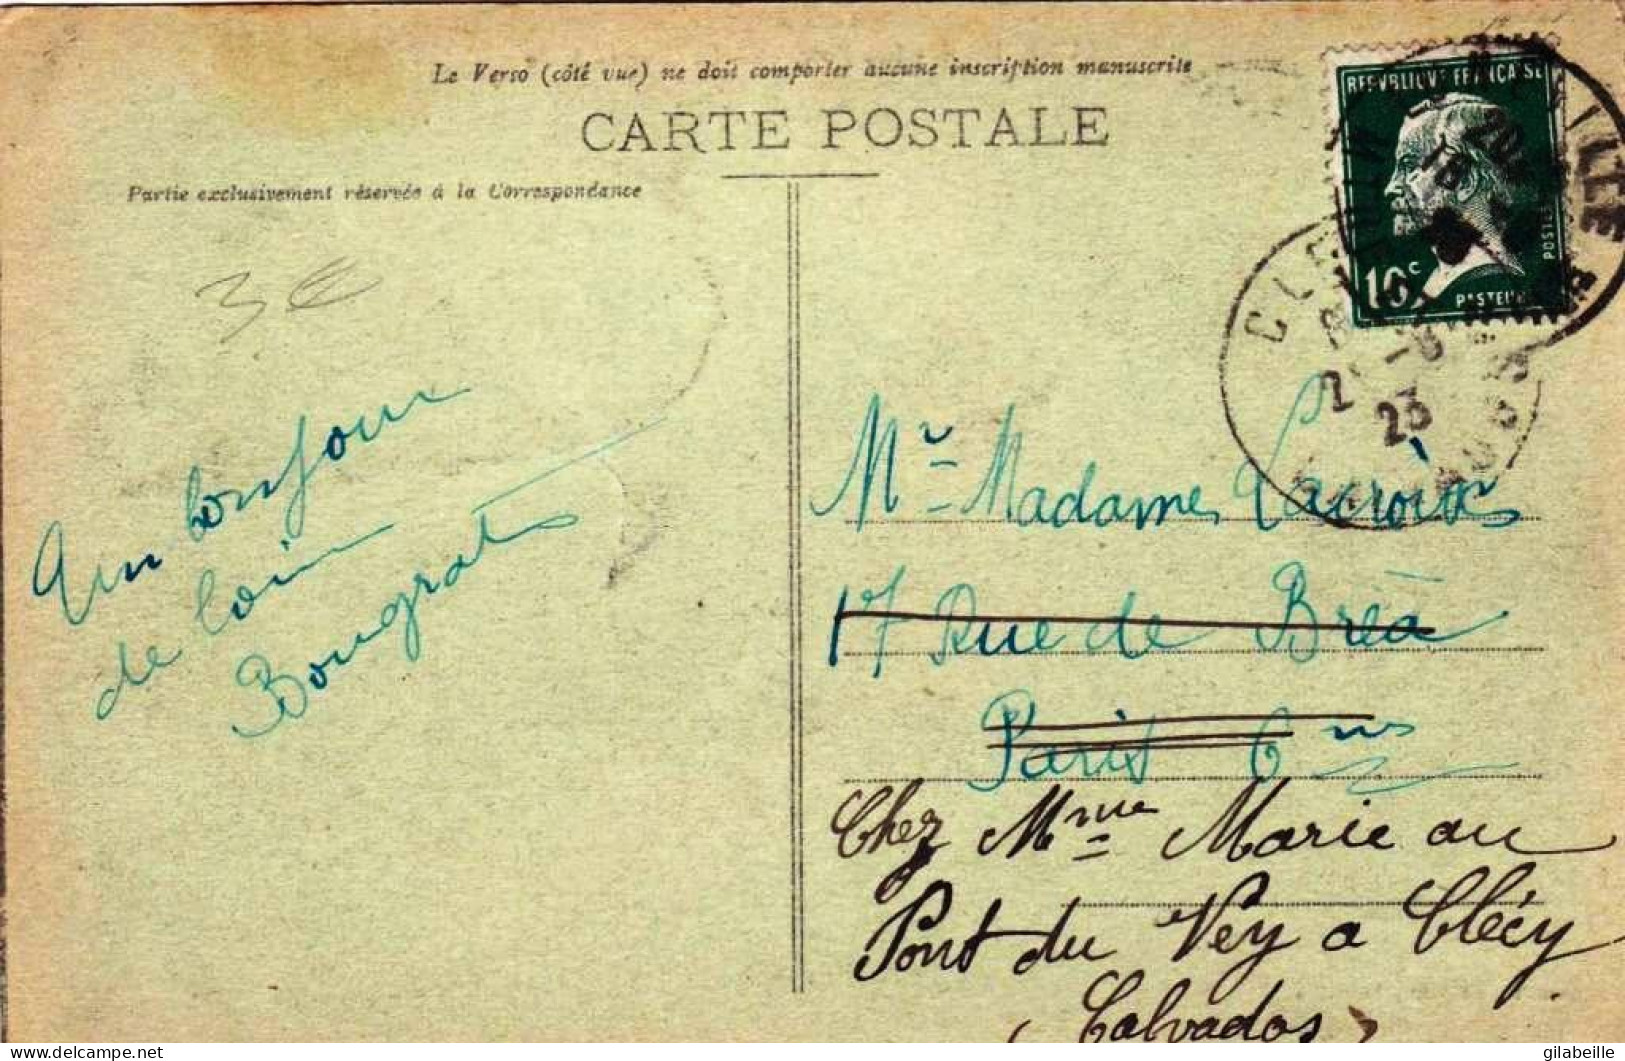 Le Verso (côté vue) ne doit comporter aucune inscription manuscrite
CARTE POSTALE
Partie exclusivement réservée à la Correspondance
REPVBLIQVE FRANÇAISE
POSTES
10c
PASTEUR
23
3€
bonjour
de loin
Mr Madame
17 Rue de Bréa
Paris 6
Chez Mme Marie au
Pont du Vey a Clécy
(Calvados)
delcampe.net
gilabeille